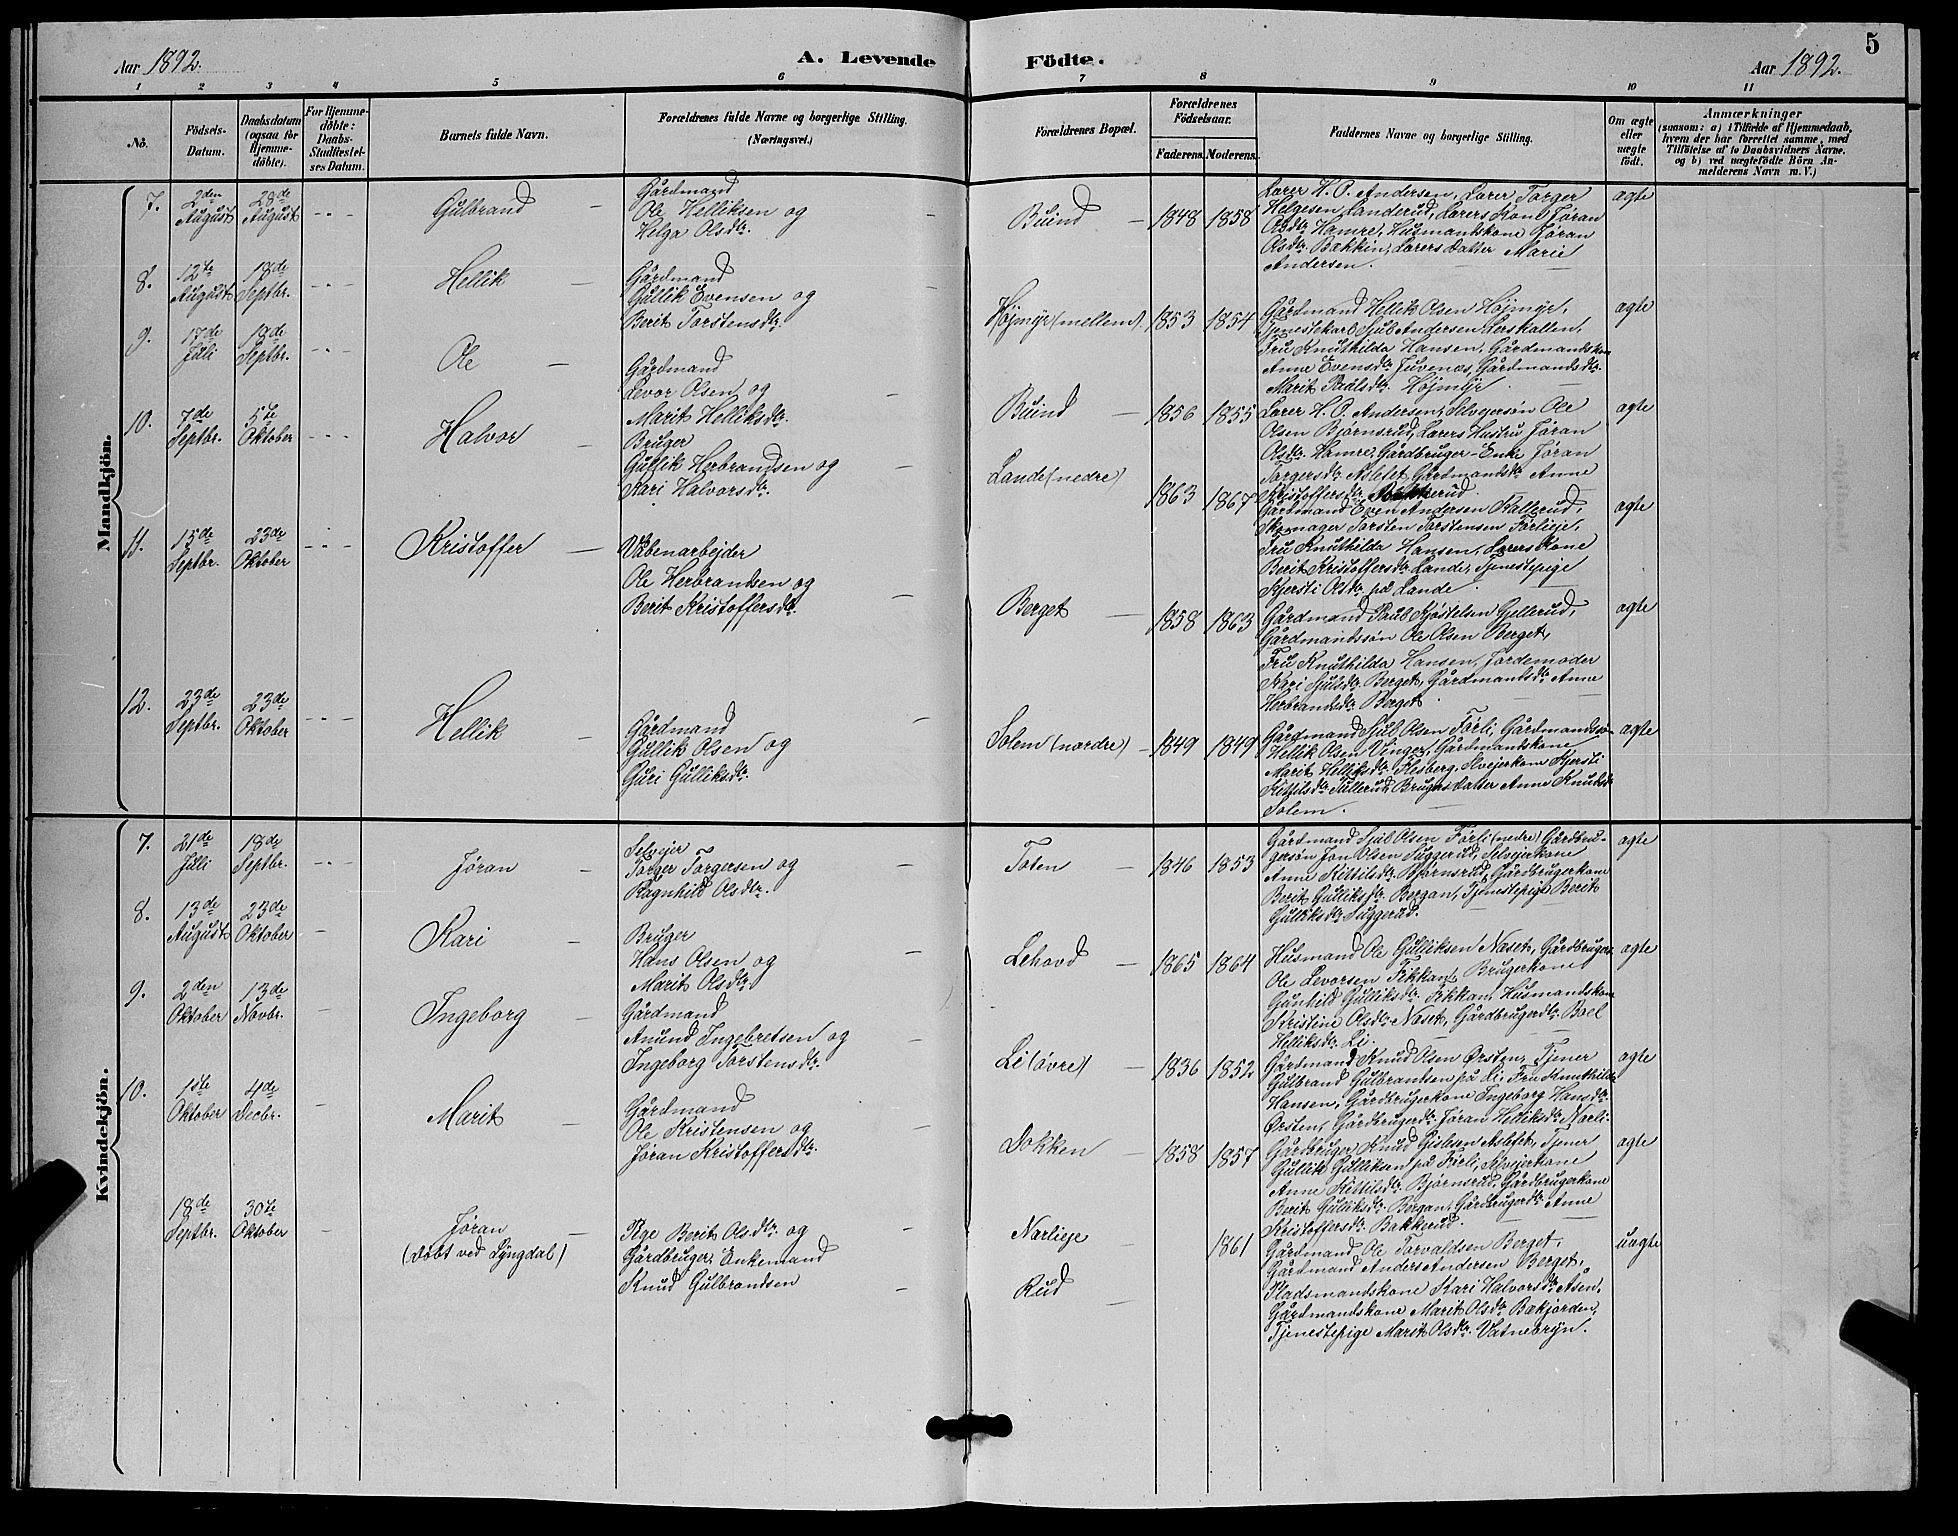 Aar 1892.
A. Levende
Födte.
Aar 1892.
5
1 2 3 4 5 6 7 8 9 10 11
No.
Födsels-
Datum.
Daabsdatum
(ogsaa for
Hjemme-
döbte).
For Hjemme-
döbte:
Daabs-
Stadfæstel-
ses Datum.
Barnets fulde Navn.
Forældrenes fulde Navne og borgerlige Stilling.
(Næringsvei.)
Forældrenes Bopæl.
Forældrenes
Födselsaar.
Faderens. Moderens.
Faddernes Navne og borgerlige Stilling.
Om ægte
eller
uægte
født.
Anmærkninger
(saasom: a) i Tilfælde af Hjemmedaab,
hvem der har forrettet samme, med
Tilföielse af to Daabsvidners Navne,
og b) ved uægtefödte Börn An-
melderens Navn m. V.)
Mandkjön.
7.
2den
August
28de
August
Gulbrand
Gårdmand
Ole Helliksen og
Helga Olsdtr.
Buind
1848 1858
Lærer H. O. Andersen, Lærer Torger
Helgesen Landerud, Lærers Kone Jøran
Olsdtr. Hamre, Husmandskone Jøran
Olsdtr. Bækkin, Lærers Datter Marie
Andersen.
ægte
8.
12te
August
18de
Septbr.
Hellik
Gårdmand
Gullik Evensen og
Berit Torstensdtr.
Højmyr (mellem)
1853 1854
Gårdmand Hellik Olsen Højmyr,
Tjenestekarl Sjul Andersen Lerskallen,
Fru Knuthilda Hansen, Gårdmandskone
Anne Evensdtr. Juvenæs, Gårdmandsdtr.
Marit Pålsdtr. Højmyr.
ægte
9.
17de
Juli
18de
Septbr.
Ole
Gårdmand
Levor Olsen og
Marit Helliksdtr.
Buind
1856 1855
Lærer H. O. Andersen, Selvejersøn Ole
Olsen Bjørnsrud, Lærers Hustru Jøran
Olsdtr. Hamre, Gårdbruger-Enke Jøran
Torgersdtr. Aslefet, Gårdmandsdtr. Anne
Kristoffersdtr. Bakkerud.
ægte
10.
7de
Septbr.
5te
Oktober
Halvor
Bruger
Gullik Herbrandsen og
Kari Halvorsdtr.
Lande (nedre)
1863 1867
Gårdmand Even Andersen Ballerud,
Skomager Torsten Torstensen Førlieje,
Fru Knuthilda Hansen, Lærers Kone
Berit Kristoffersdtr. Lande, Tjenestepige
Kjersti Olsdtr. på Lande.
ægte
11.
15de
Septbr.
23de
Oktober
Kristoffer
Våbenarbejder
Ole Herbrandsen og
Berit Kristoffersdtr.
Berget
1858 1863
Gårdmand Paul Kjøstelsen Gjellerud,
Gårdmandssøn Ole Olsen Berget,
Fru Knuthilda Hansen, Jordemoder
Kari Sjulsdtr. Berget, Gårdmandsdtr. Anne
Herbrandsdtr. Berget.
ægte
12.
23de
Septbr.
23de
Oktober
Hellik
Gårdmand
Gullik Olsen og
Guri Gulliksdtr.
Solem (nørdre)
1849 1849
Gårdmand Sjul Olsen Førli, Gårdmandssøn
Hellik Olsen Vinger, Gårdmandskone
Marit Helliksdtr. Flesberg, Selvejerkone Kjersti
Kittilsdtr. Tullerud, Brugers Datter Anne Knudsdtr.
Solem.
ægte
Kvindekjön.
7.
21de
Juli
18de
Septbr.
Jøran
Selvejer
Torger Torgersen og
Ragnhild Olsdtr.
Toten
1846 1853
Gårdmand Sjul Olsen Førli (nedre) Gårdbru-
gersøn Jon Olsen Suggerud, Selvejerkone
Anne Kittilsdtr. Bjørnsrud, Gårdbrugerkone
Berit Gulliksdtr. Bergan, Tjenestepige Berit
Gulliksdtr. Suggerud.
ægte
8.
13de
August
23de
Oktober
Kari
Bruger
Hans Olsen og
Marit Olsdtr.
Lehovd
1865 1864
Husmand Ole Gulliksen Næset, Gårdbruger
Ole Levorsen Fikkan, Brugerkone
Gunhild Gulliksdtr. Fikkan, Husmandskone
Kristine Olsdtr. Næset, Gårdbrugerdtr. Boel
Helliksdtr. Li.
ægte
9.
2den
Oktober
13de
Novbr.
Ingeborg
Gårdmand
Anund Ingebretsen og
Ingeborg Torstensdtr.
Li (øvre)
1836 1852
Gårdmand Knud Olsen Ørsten, Tjener
Gulbrand Gulbrandsen på Li, Fru Knuthilda
Hansen, Gårdbrugerkone Ingeborg Hansdtr.
Ørsten, Gårdbrugerdtr. Jøran Helliksdtr. Nørli.
ægte
10.
1ste
Oktober
4de
Decbr.
Marit
Gårdmand
Ole Kristensen og
Jøran Kristoffersdtr.
Dokken
1858 1857
Gårdbruger Knud Gislesen Aslefet, Tjener
Gullik Gulliksen på Førli, Selvejerkone
Anne Kittilsdtr. Bjørnsrud, Gårdbrugerkone
Berit Gulliksdtr. Bergan, Gårdbrugerdtr. Anne
Kristoffersdtr. Bakkerud.
ægte
18de
Septbr.
30te
Oktober
Jøran
(døbt ved Lyngdal)
Pige Berit Olsdtr. og
Gårdbruger, Enkemand
Knud Gulbrandsen
Nørlieje
Rud
1861
Gårdmand Ole Torvaldsen Berget,
Gårdmand Anders Andersen Berget,
Pladsmandskone Kari Halvorsdtr. Åsen,
Gårdmandskone Marit Olsdtr. Bækjorden,
Tjenestepige Marit Olsdtr. Vatnebryn.
uægte